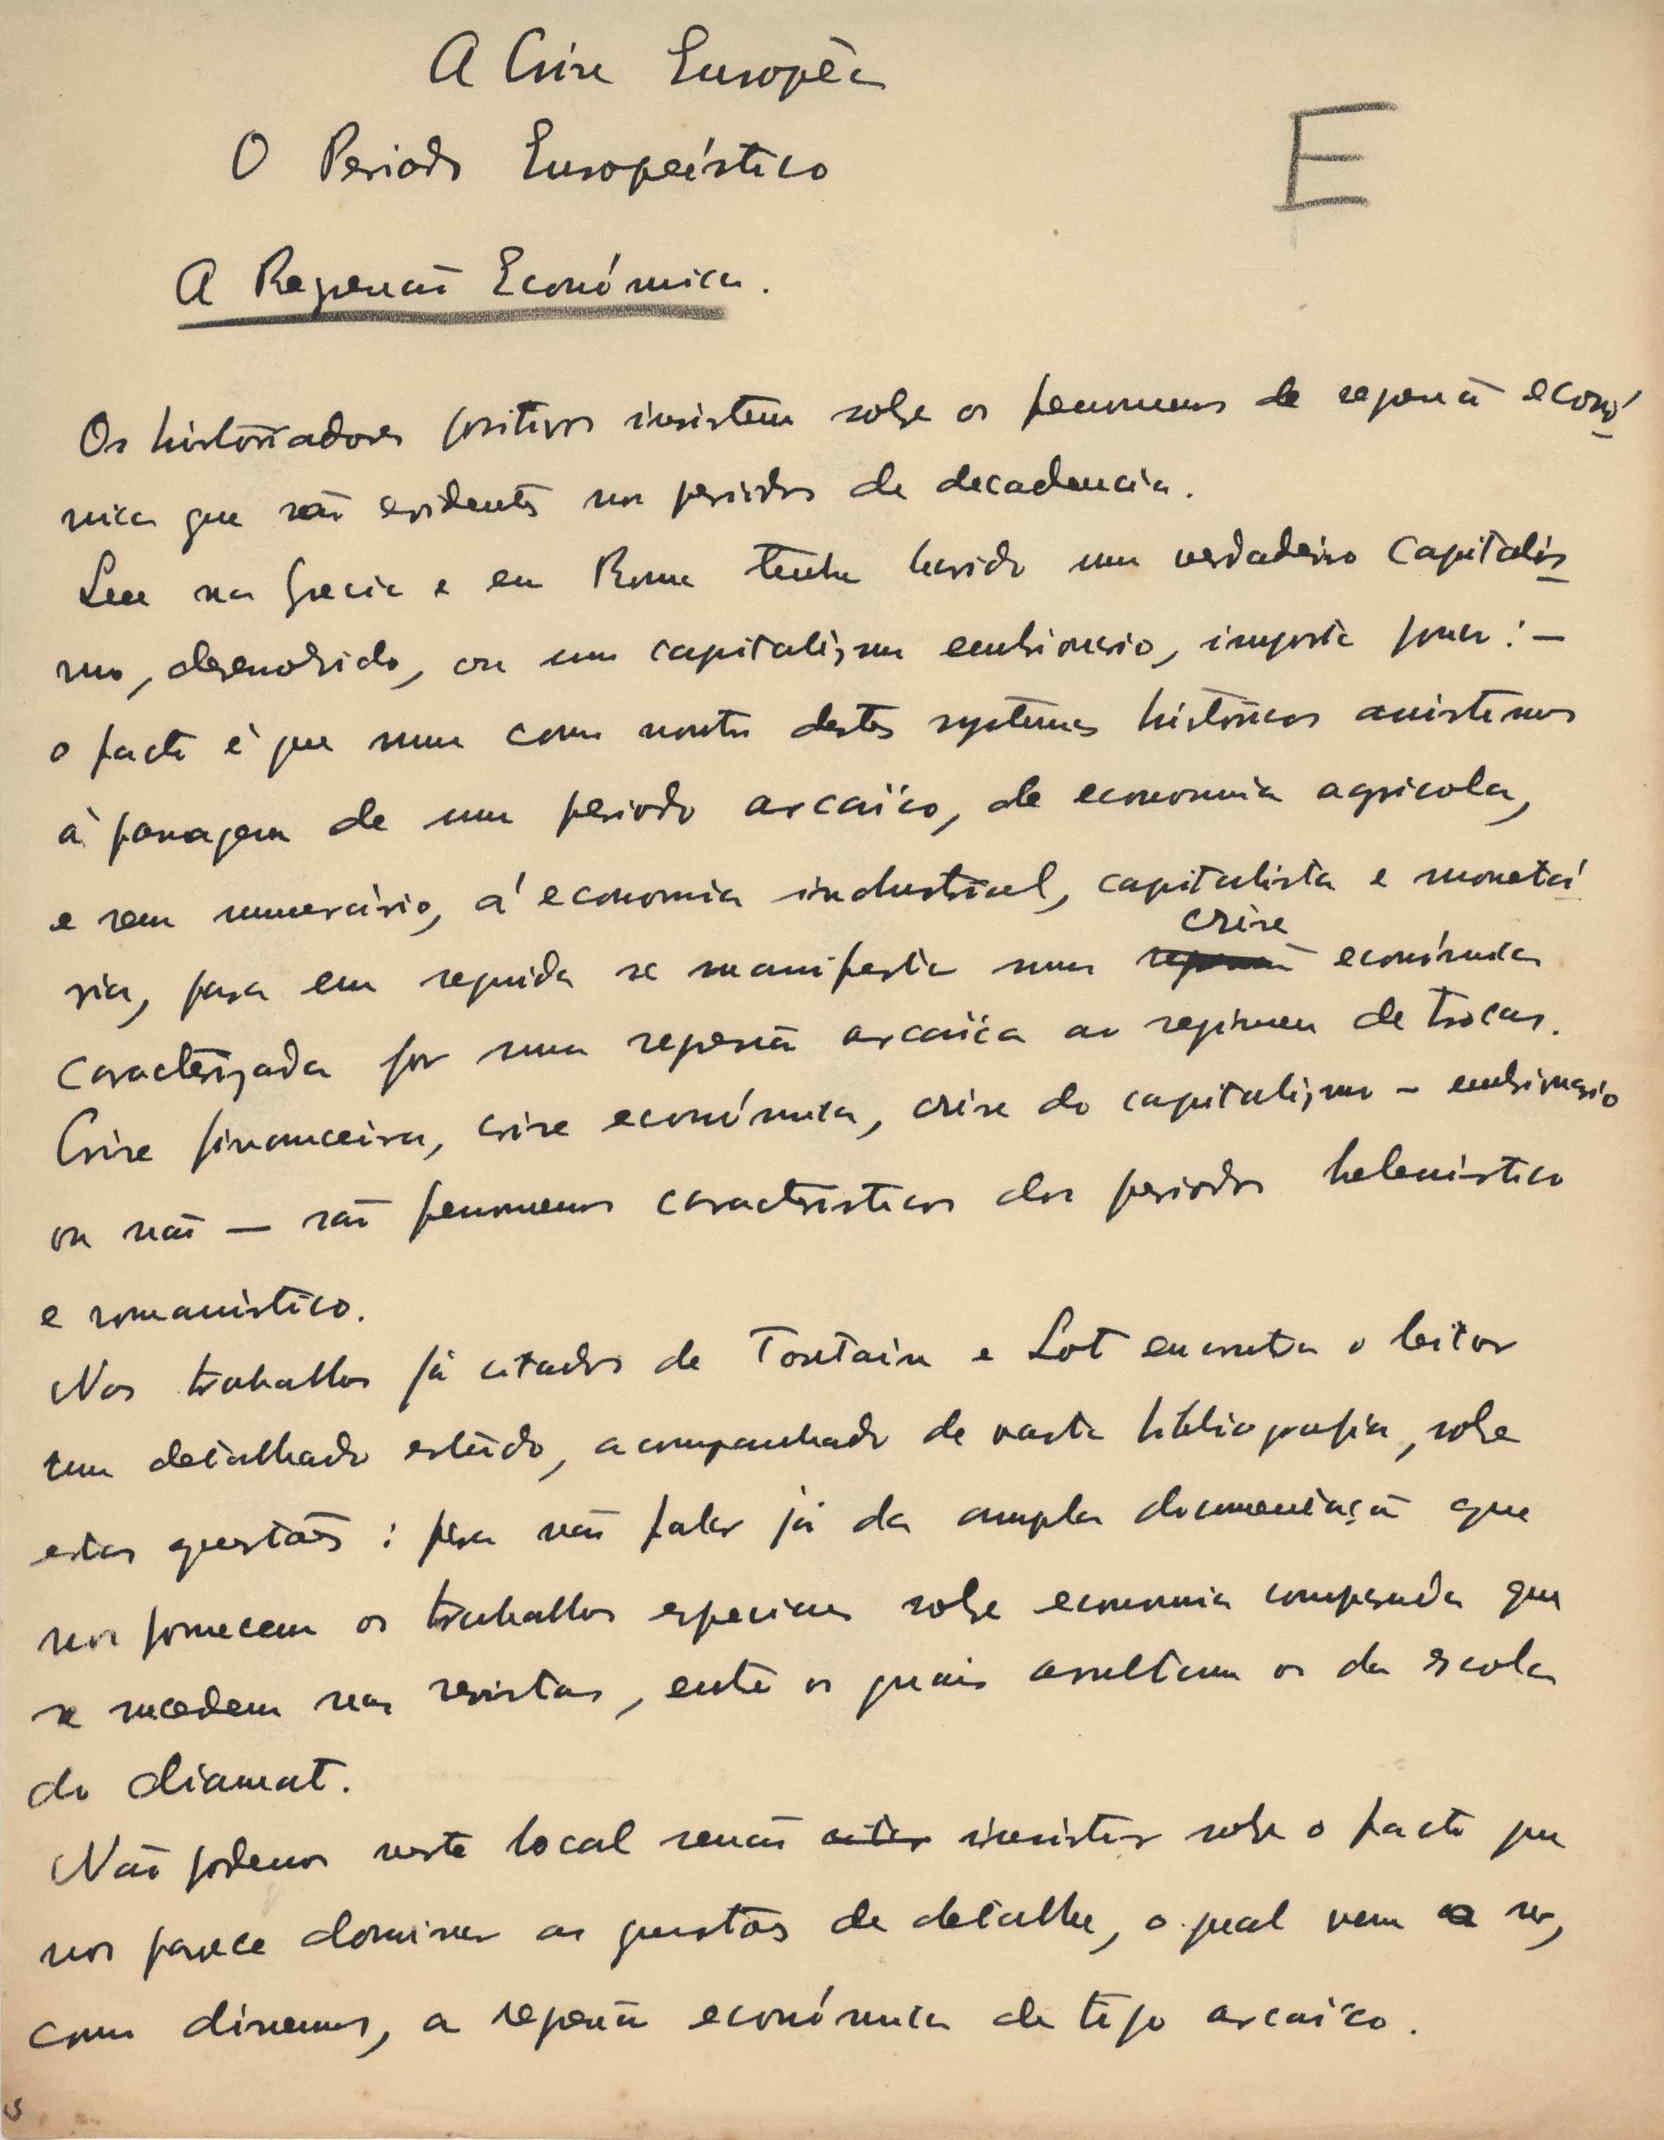 A Crise Europêa
O Periodo Europeístico
E
A Regressão Económica.
Os historiadores positivos insistem sobre os fenomenos de regressão econó
mica que são evidentes nos periodos de decadencia.
na Grecia e em Roma tenha havido um verdadeiro Capitalis
mo, desenvolvido, ou um capitalismo embrionario, importa pouco: –
o facto é que num como noutro destes systemas históricos assistimos
à passagem de um periodo arcaïco, de economia agricola,
e sem numerário, á economia industrial, capitalista e monetá
ria, para em seguida se manifestar uma regressão crise económica
caracterizada por uma regressão arcaïca ao regimen de trocas.
Crise financeira, crise económica, crise do capitalismo – embrionario
ou não — são fenomenos caracteristicos dos periodos helenistico
e romanistico.
Nos trabalhos já citados de Toutain e Lot encontra o leitor
um detalhado estudo, acompanhado de vasta bibliografia, sobre
estas questões: para não falar já da ampla documentação que
nos fornecem os trabalhos especiaes sobre economia comparada que
se sucedem nas revistas, entre os quais avultam os da escola
do diamat.
Não podemos neste local senão citar insistir sobre o facto que
nos parece dominar as questões de detalhe, o qual vem a ser,
como dissemos, a regressão económica de tipo arcaïco.